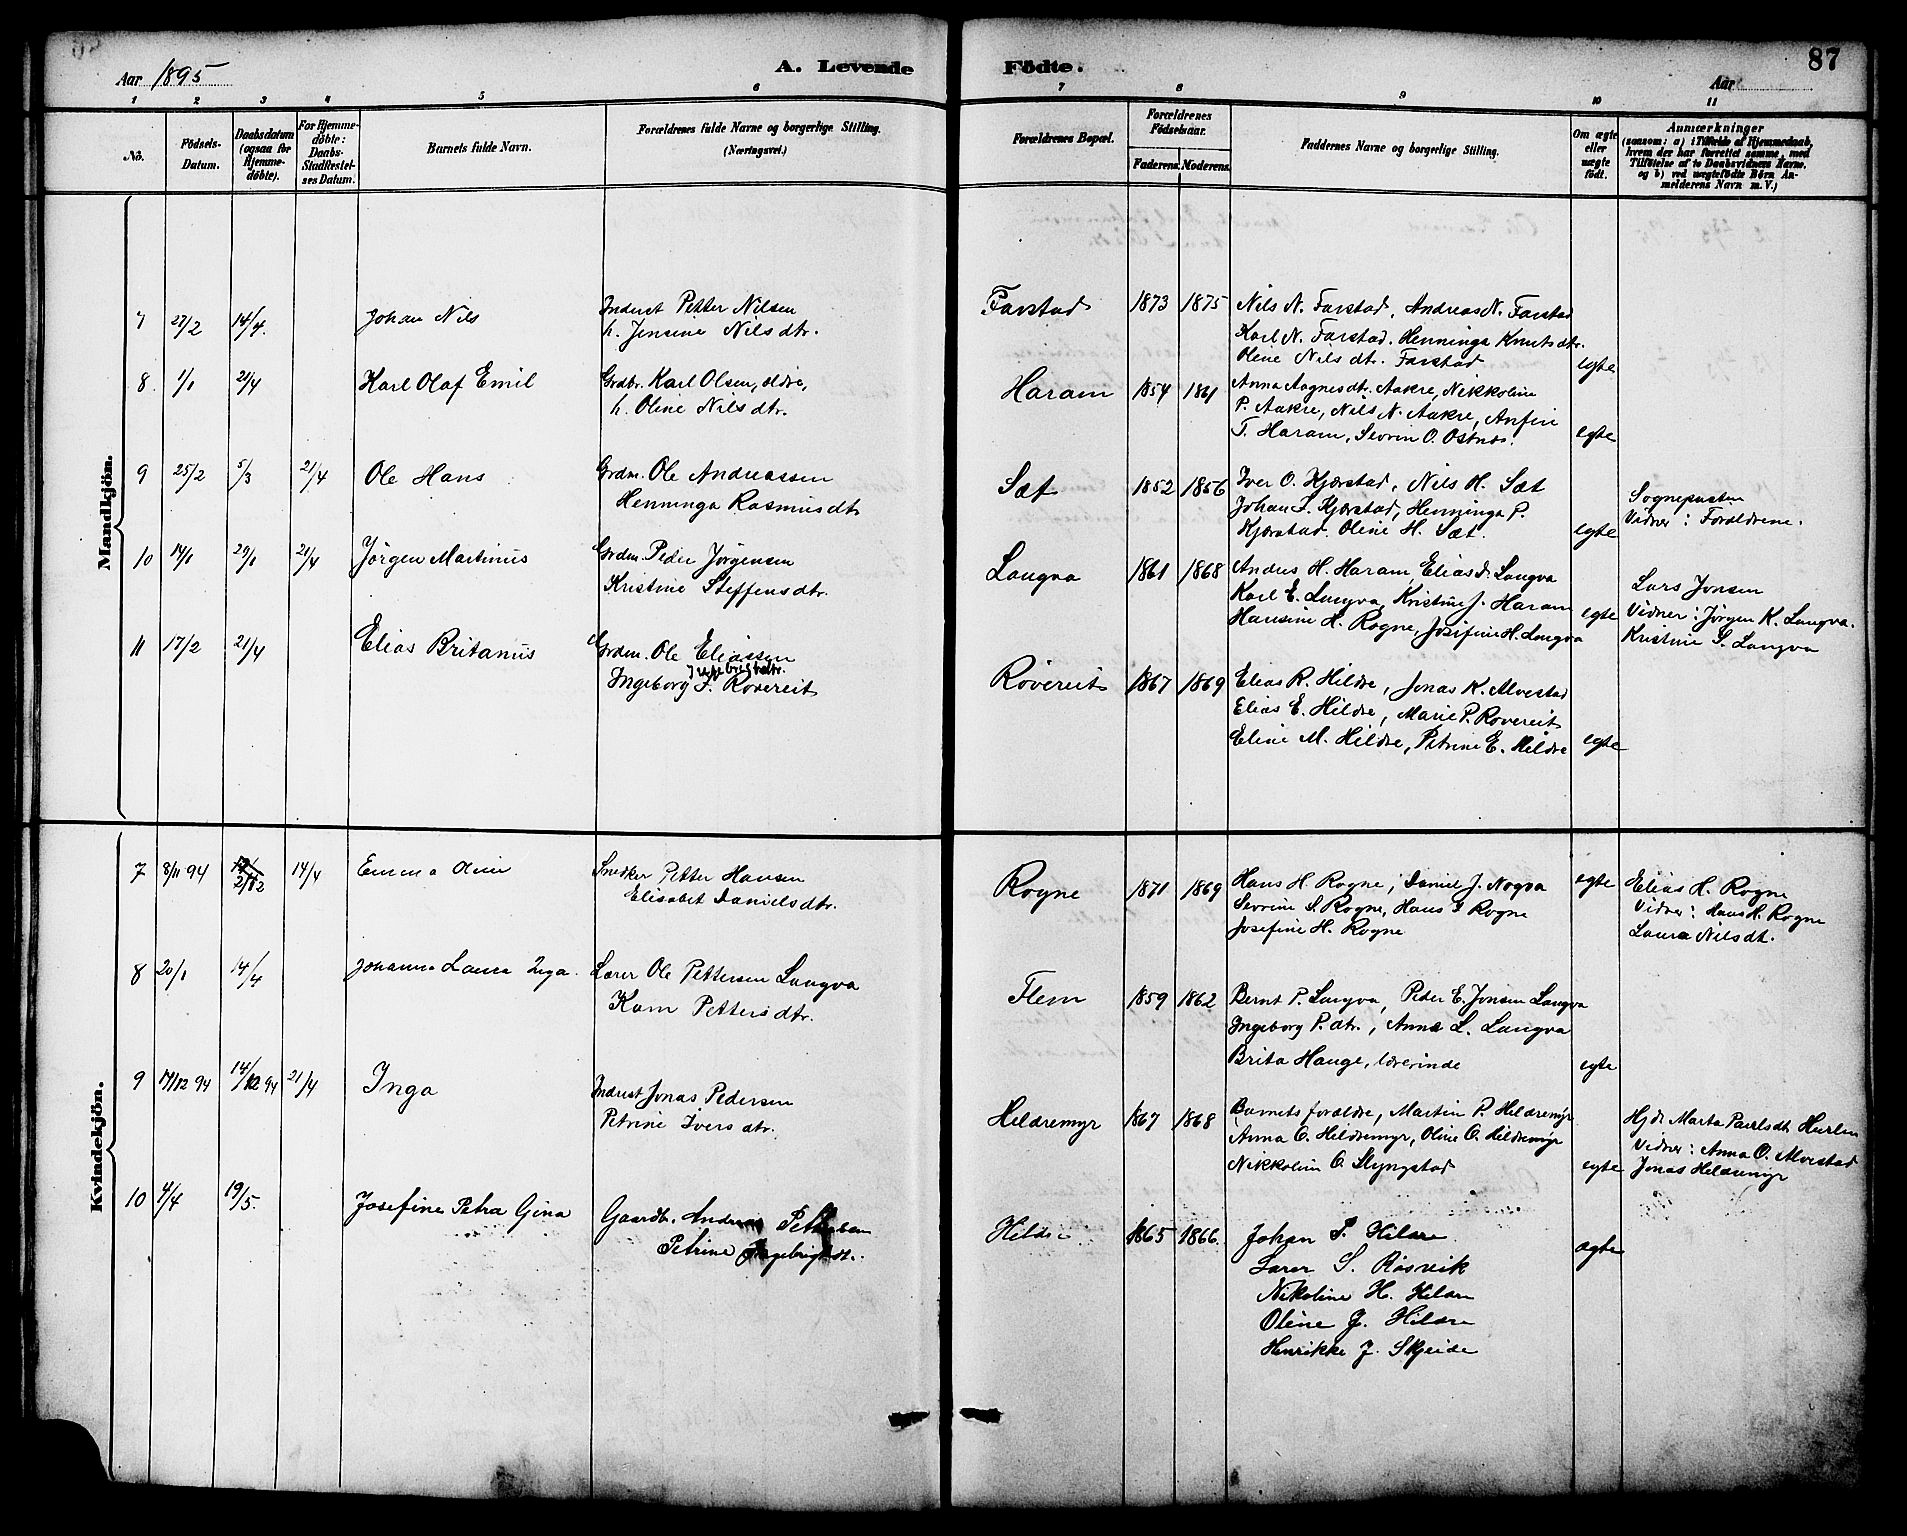 87
Aar 1895
A. Levende
Födte.
Aar
1 2 3 4 5 6 7 8 9 10 11
No.
Födsels-Datum.
Daabsdatum (ogsaa for Hjemme-döbte).
For Hjemme-döbte: Daabs-Stadfestel-ses Datum.
Barnets fulde Navn.
Forældrenes fulde Navne og borgerlige Stilling.
(Næringsvei.)
Forældrenes Bopæl.
Forældrenes Födselsaar.
Faderens. Moderens.
Faddernes Navne og borgerlige Stilling.
Om ægte eller uægte födt.
Anmærkninger
(saasom: a) i Tilfælde af Hjemmedaab,
hvem der har forrettet samme, med
Tilföielse af to Daabsvidners Navne.
og b) ved uægtefödte Börn An-
melderens Navn m. V.)
Mandkjön.
7 27/2 14/4. Johan Nils
Inderst Petter Nilsen
h. Jensine Nilsdtr.
Farstad 1873 1875
Nils N. Farstad, Andreas N. Farstad
Karl N. Farstad. Henninga Knutsdtr.
Oline Nilsdtr. Farstad
egte
8. 1/1 21/4 Karl Olaf Emil
Grdbr. Karl Olsen, ældre,
h. Oline Nilsdtr.
Haram 1854 1861
Anna Aagnesdtr. Aakre, Nikkoline
P. Aakre, Nils N. Aakre, Anfin
T. Haram, Sevrin O. Ostnes.
egte
9 25/2 5/3 21/4 Ole Hans
Grdm. Ole Andreassen
Henninga Rasmusdtr
Sæt 1852 1856
Iver O. Kjærstad, Nils H. Sæt
Johan I. Kjærstad, Henninga P.
Kjærstad. Oline H. Sæt.
egte
Sognepresten
Vidner: Forældrene.
10 14/1 29/1 21/4 Jörgen Martinus
Grdm. Peder Jørgensen
Kristine Steffensdtr.
Longva 1861 1868
Andres H. Haram, Elias I. Longva
Karl E. Longva, Kristine J. Haram
Hansine H. Rogne, Josefine H. Longva
egte
Lars Jonsen
Vidner: Jørgen K. Longva.
Kristine S. Longva
11 17/2 21/4 Elias Britanus
Grdm. Ole Eliassen
Ingebrigtsdtr.
Ingeborg I. Røvereit
Røvereit 1867 1869
Elias R. Hildre, Jonas K. Alvestad
Elias E. Hildre, Marie P. Røvereit
Eline M. Hildre, Petrine E. Hildre
egte
Kvindekjön.
7 8/11 94 2/12 14/4 Emma Oline
Snedker Petter Hansen
Elisabet Danielsdtr.
Rogne 1871 1869
Hans H. Rogne, Daniel J. Nogva
Sevrine S. Rogne, Hans I Rogne
Josefine H. Rogne
egte
Elias H. Rogne
Vidner: Hans H. Rogne
Laura Nilsdt.
8 20/1 14/4 Johanna Laura Inga.
Lærer Ole Pettersen Longva
Karn Pettersdtr.
Flem 1859 1862
Bernt P. Longva, Peder E. Jonsen Longva
Ingeborg P.dtr., Anna L. Longva
Brita Hauge, lærerinde
egte
9 14/12 94 14/12 94 21/4 Inga
Inderst Jonas Pedersen
Petrine Iversdtr.
Hildremyr 1867 1868
Barnets forældre, Martin P. Hildremyr
Anna O. Hildremyr, Oline O. Hildremyr
Nikkoline O. Slyngstad
egte
Hjdr. Marta Paulsdt. Hurlen
Vidner: Anna O. Alvestad
Jonas Hildremyr
10 4/4 19/5. Josefine Petra Gina
Gaardbr. Andreas Pettersen
Petrine Ingebrigtsdt.
Hildre 1865 1866.
Johan P. Hildre
Lærer S. Røsvik
Nikoline H. Hildre
Oline J. Hildre
Henrikke J. Skjeide
ægte